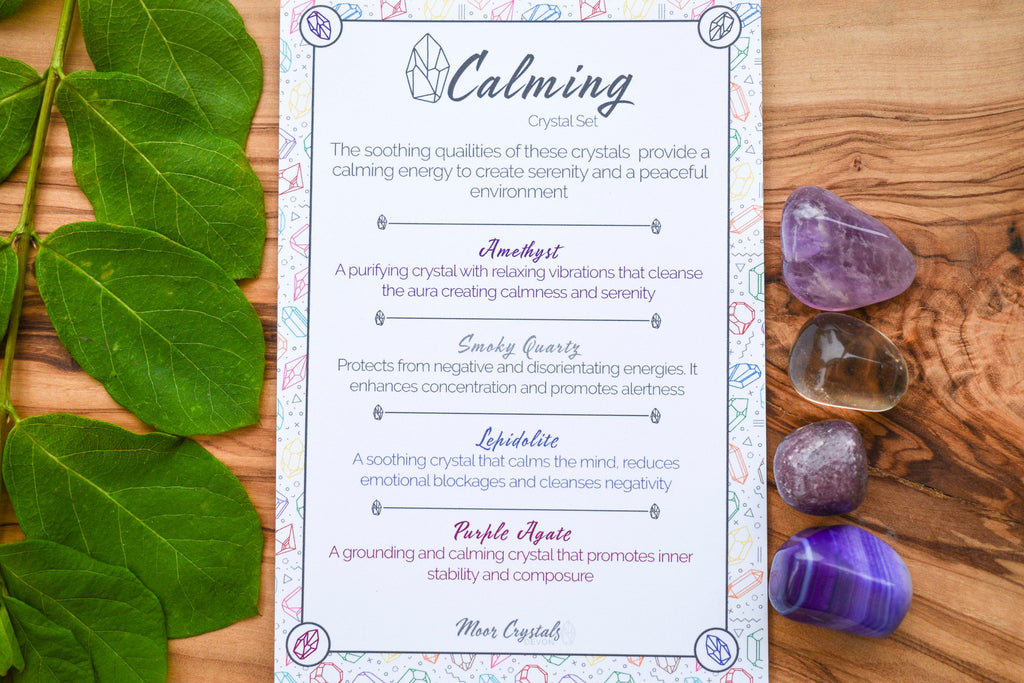 Calming
Crystal Set
The soothing quailities of these crystals provide a
calming energy to create serenity and a peaceful
environment
Amethyst
A purifying crystal with relaxing vibrations that cleanse
the aura creating calmness and serenity
Smoky Quartz
Protects from negative and disorientating energies. It
enhances concentration and promotes alertness
Lepidolite
A soothing crystal that calms the mind, reduces
emotional blockages and cleanses negativity
Purple Agate
A grounding and calming crystal that promotes inner
stability and composure
Moor Crystals
DEVON